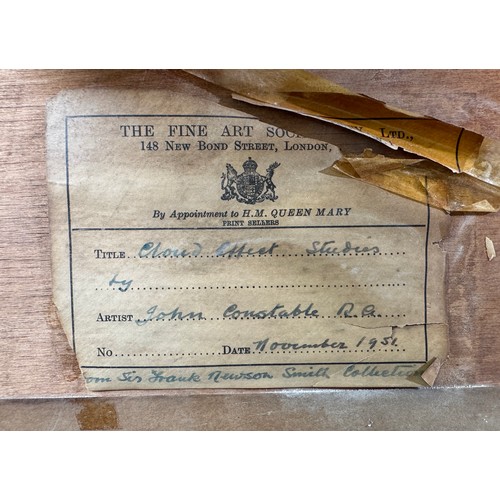 THE FINE ART SOC LTD.,
148 NEW BOND STREET, LONDON,
By Appointment to H.M. QUEEN MARY
PRINT SELLERS
TITLE Cloud Effect Studies
by
ARTIST John Constable R.A.
No. DATE November 1951.
om Sir Frank Newson Smith Collection